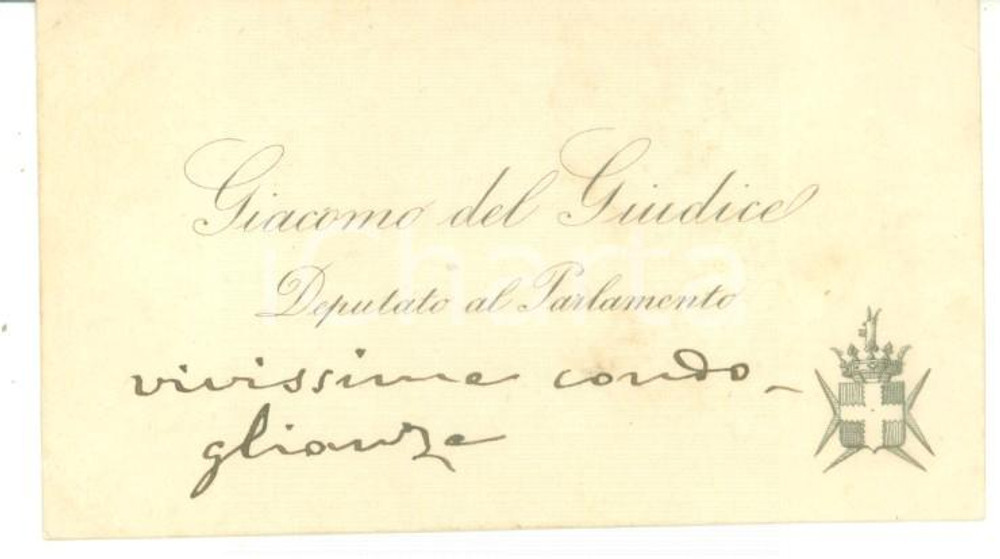 Giacomo del Giudice
Deputato al Parlamento
vivissime condo-
glianze
iCharta